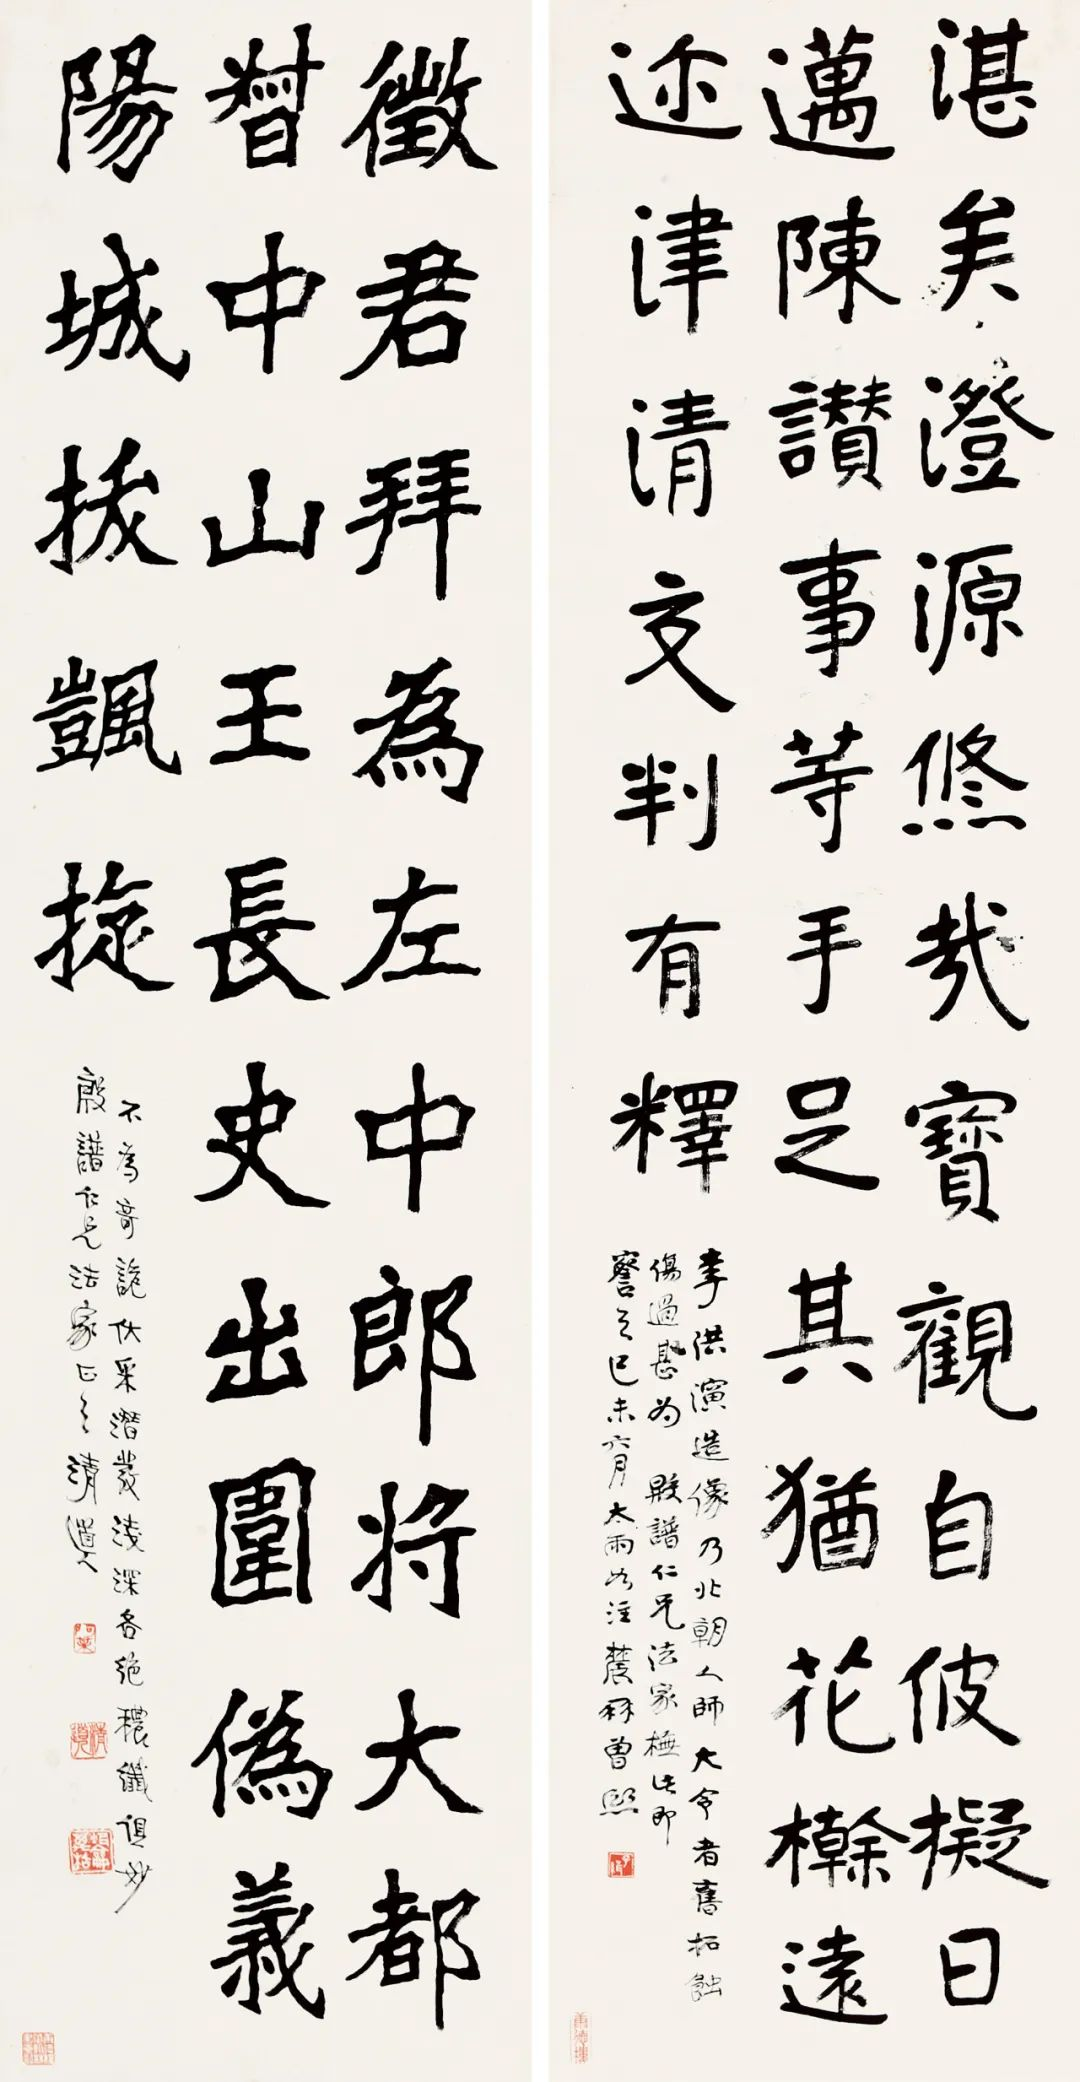 湛矣澄源悠哉寶觀自彼擬日
邁陳讃事等手足其猶花檊遠
迩津清文判有釋
李洪演造像乃北朝人師大令者舊拓蝕
傷過甚為殿譜仁兄法家橅此即
詧之己未六月大雨如注農髯曾熙
徵君拜為左中郎將大都
督中山王長史出圍偽義
陽城拔凱旋
不為奇詭伏采潛發淺深各絕穠纖俱妙
殿譜仁兄法家正之清道人